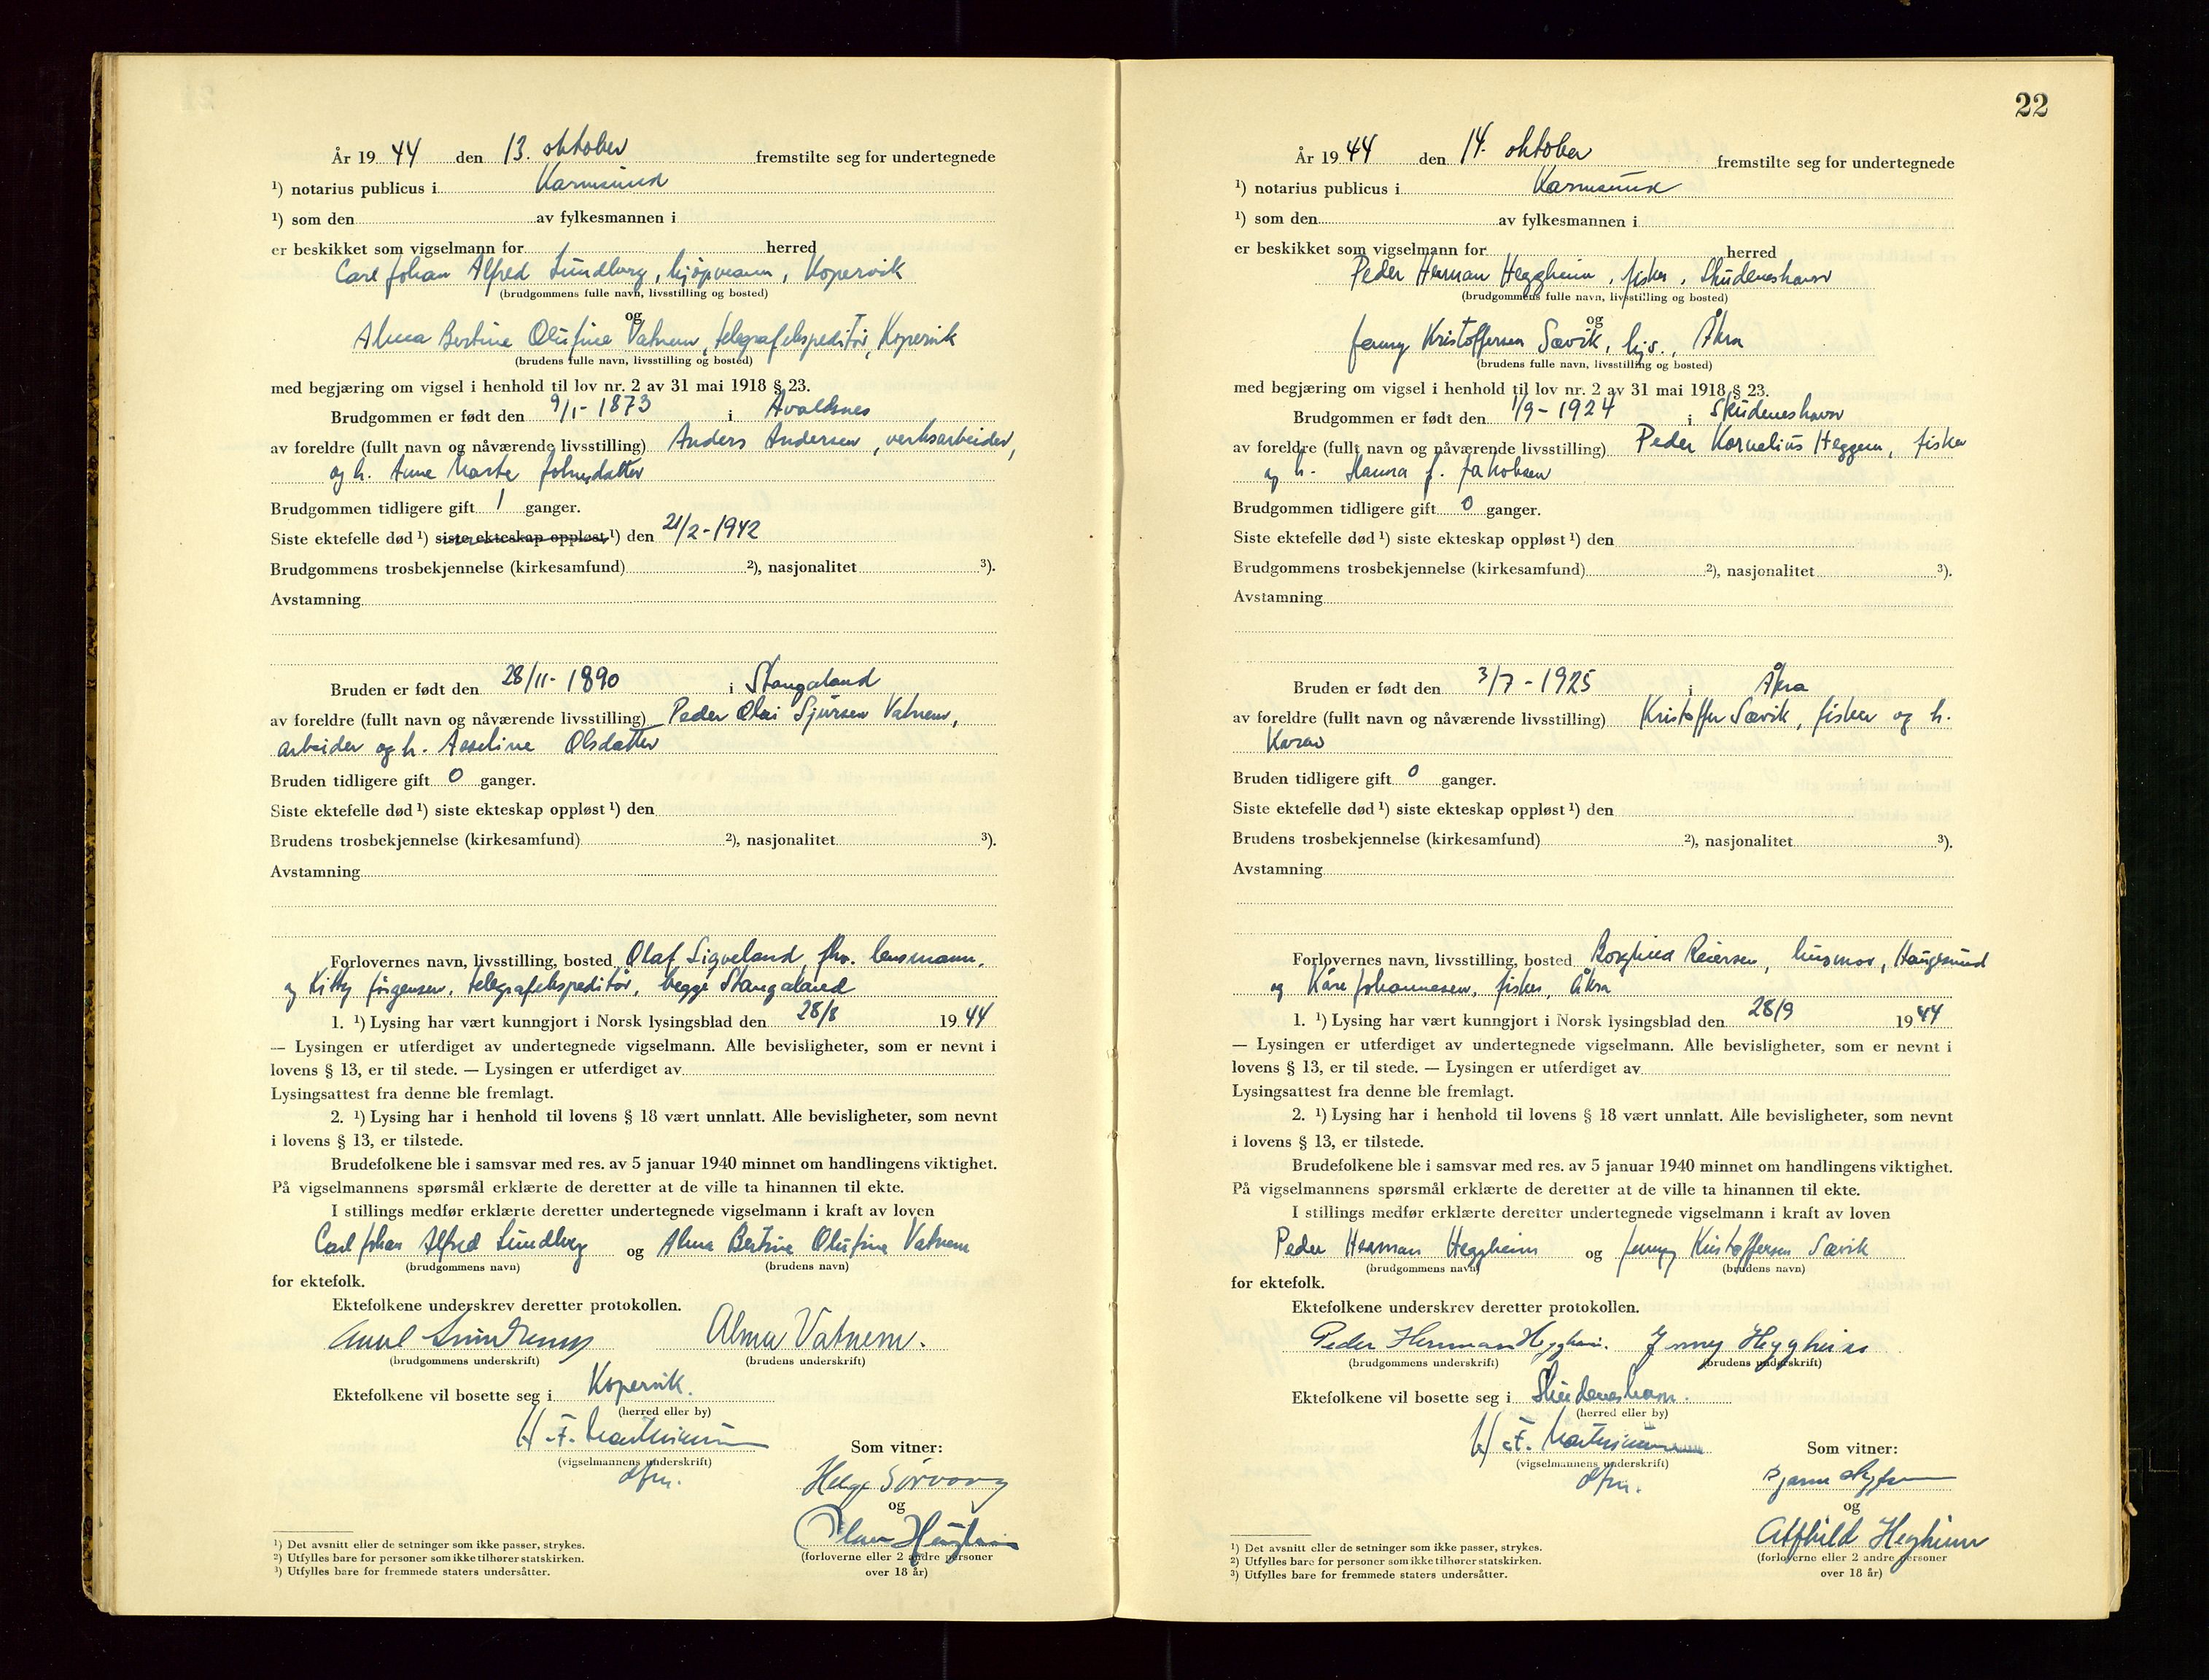 År 19 44 den 13. oktober fremstilte seg for undertegnede
¹) notarius publicus i Karmsund
¹) som den av fylkesmannen i
er beskikket som vigselmann for herred
Carl Johan Alfred Lundberg, kjøpmann, Kopervik
(brudgommens fulle navn, livsstilling og bosted)
og
Alma Bertine Olufine Vatnem, telegrafekspeditør, Kopervik
(brudens fulle navn, livsstilling og bosted)
med begjæring om vigsel i henhold til lov nr. 2 av 31 mai 1918 § 23.
Brudgommen er født den 9/1-1873 i Avaldsnes
av foreldre (fullt navn og nåværende livsstilling) Anders Andersen, verksarbeider,
og h. Anne Marta Johnsdatter
Brudgommen tidligere gift 1 ganger.
Siste ektefelle død ¹) siste ekteskap oppløst ¹) den 21/2-1942
Brudgommens trosbekjennelse (kirkesamfund) ²), nasjonalitet ³).
Avstamning
Bruden er født den 28/11-1890 i Stangaland
av foreldre (fullt navn og nåværende livsstilling) Peder Olai Sjursen Vatnem,
arbeider og h. Asseline Olsdatter
Bruden tidligere gift 0 ganger.
Siste ektefelle død ¹) siste ekteskap oppløst ¹) den
Brudens trosbekjennelse (kirkesamfund) ²), nasjonalitet ³).
Avstamning
Forlovernes navn, livsstilling, bosted Olaf Sigveland, fhv. lensmann,
og Kitty Jørgensen, telegrafekspeditør, begge Stangaland
1. ¹) Lysing har vært kunngjort i Norsk lysingsblad den 28/8 19 44
— Lysingen er utferdiget av undertegnede vigselmann. Alle bevisligheter, som er nevnt i
lovens § 13, er til stede. — Lysingen er utferdiget av
Lysingsattest fra denne ble fremlagt.
2. ¹) Lysing har i henhold til lovens § 18 vært unnlatt. Alle bevisligheter, som nevnt
i lovens § 13, er tilstede.
Brudefolkene ble i samsvar med res. av 5 januar 1940 minnet om handlingens viktighet.
På vigselmannens spørsmål erklærte de deretter at de ville ta hinannen til ekte.
I stillings medfør erklærte deretter undertegnede vigselmann i kraft av loven
Carl Johan Alfred Lundberg og Alma Bertine Olufine Vatnem
(brudgommens navn) (brudens navn)
for ektefolk.
Ektefolkene underskrev deretter protokollen.
Alma Vatnem.
(brudgommens underskrift) (brudens underskrift)
Ektefolkene vil bosette seg i Kopervik.
(herred eller by)
(vigselmannens underskrift)
Som vitner:
Helge
og
(forloverne eller 2 andre personer
over 18 år)
¹) Det avsnitt eller de setninger som ikke passer, strykes.
²) Utfylles bare for personer som ikke tilhører statskirken.
³) Utfylles bare for fremmede staters undersåtter.
22
År 19 44 den 14. oktober fremstilte seg for undertegnede
¹) notarius publicus i Karmsund
¹) som den av fylkesmannen i
er beskikket som vigselmann for herred
Peder Herman Heggheim, fisker, Skudeneshavn
(brudgommens fulle navn, livsstilling og bosted)
og
Jenny Kristoffersen Sævik, hjs., Åkra
(brudens fulle navn, livsstilling og bosted)
med begjæring om vigsel i henhold til lov nr. 2 av 31 mai 1918 § 23.
Brudgommen er født den 1/9-1924 i Skudeneshavn
av foreldre (fullt navn og nåværende livsstilling) Peder Kornelius Heggem, fisker
og h. J. Jakobsen
Brudgommen tidligere gift 0 ganger.
Siste ektefelle død ¹) siste ekteskap oppløst ¹) den
Brudgommens trosbekjennelse (kirkesamfund) ²), nasjonalitet ³).
Avstamning
Bruden er født den 3/7-1925 i Åkra
av foreldre (fullt navn og nåværende livsstilling) Kristoffer Sævik, fisker og h.
Karen
Bruden tidligere gift 0 ganger.
Siste ektefelle død ¹) siste ekteskap oppløst ¹) den
Brudens trosbekjennelse (kirkesamfund) ²), nasjonalitet ³).
Avstamning
Forlovernes navn, livsstilling, bosted Borghild Reiersen, husmor, Haugesund
og Kåre Johannesen, fisker, Åkra
1. ¹) Lysing har vært kunngjort i Norsk lysingsblad den 28/9 19 44
— Lysingen er utferdiget av undertegnede vigselmann. Alle bevisligheter, som er nevnt i
lovens § 13, er til stede. — Lysingen er utferdiget av
Lysingsattest fra denne ble fremlagt.
2. ¹) Lysing har i henhold til lovens § 18 vært unnlatt. Alle bevisligheter, som nevnt
i lovens § 13, er tilstede.
Brudefolkene ble i samsvar med res. av 5 januar 1940 minnet om handlingens viktighet.
På vigselmannens spørsmål erklærte de deretter at de ville ta hinannen til ekte.
I stillings medfør erklærte deretter undertegnede vigselmann i kraft av loven
Peder Herman Heggheim og Jenny Kristoffersen Sævik
(brudgommens navn) (brudens navn)
for ektefolk.
Ektefolkene underskrev deretter protokollen.
Peder Herman Heggheim. Jenny Heggheim
(brudgommens underskrift) (brudens underskrift)
Ektefolkene vil bosette seg i Skudeneshavn.
(herred eller by)
(vigselmannens underskrift)
Som vitner:
og
Alfhild Hegheim
(forloverne eller 2 andre personer
over 18 år)
¹) Det avsnitt eller de setninger som ikke passer, strykes.
²) Utfylles bare for personer som ikke tilhører statskirken.
³) Utfylles bare for fremmede staters undersåtter.